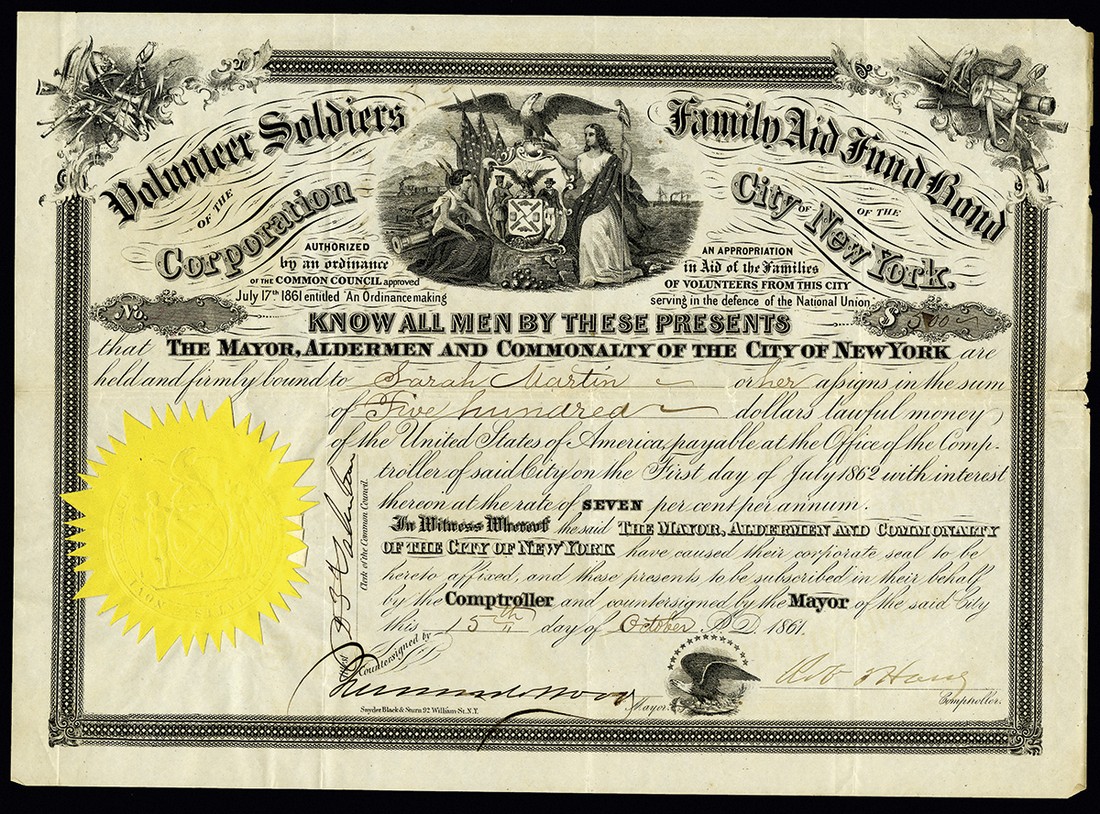 Volunteer Soldiers Family Aid Fund Bond
OF THE Corporation OF THE City OF New York.
AUTHORIZED
by an ordinance
OF THE COMMON COUNCIL approved
July 17th 1861 entitled "An Ordinance making
AN APPROPRIATION
in Aid of the Families
OF VOLUNTEERS FROM THIS CITY
serving in the defence of the National Union
No.
$ 500
KNOW ALL MEN BY THESE PRESENTS
that THE MAYOR, ALDERMEN AND COMMONALTY OF THE CITY OF NEW YORK are
held and firmly bound to Sarah Martin or her assigns in the sum
of Five hundred dollars lawful money
of the United States of America, payable at the Office of the Comp-
troller of said City on the First day of July 1862 with interest
thereon at the rate of SEVEN per cent per annum.
In Witness Whereof the said THE MAYOR, ALDERMEN AND COMMONALTY
OF THE CITY OF NEW YORK have caused their corporate seal to be
hereto affixed, and these presents to be subscribed in their behalf
by the Comptroller and countersigned by the Mayor of the said City
this 15th day of October A.D. 1861.
Clerk of the Common Council.
Attest
Countersigned by
Mayor.
Comptroller.
Snyder Black & Sturn 92 William St. N.Y.